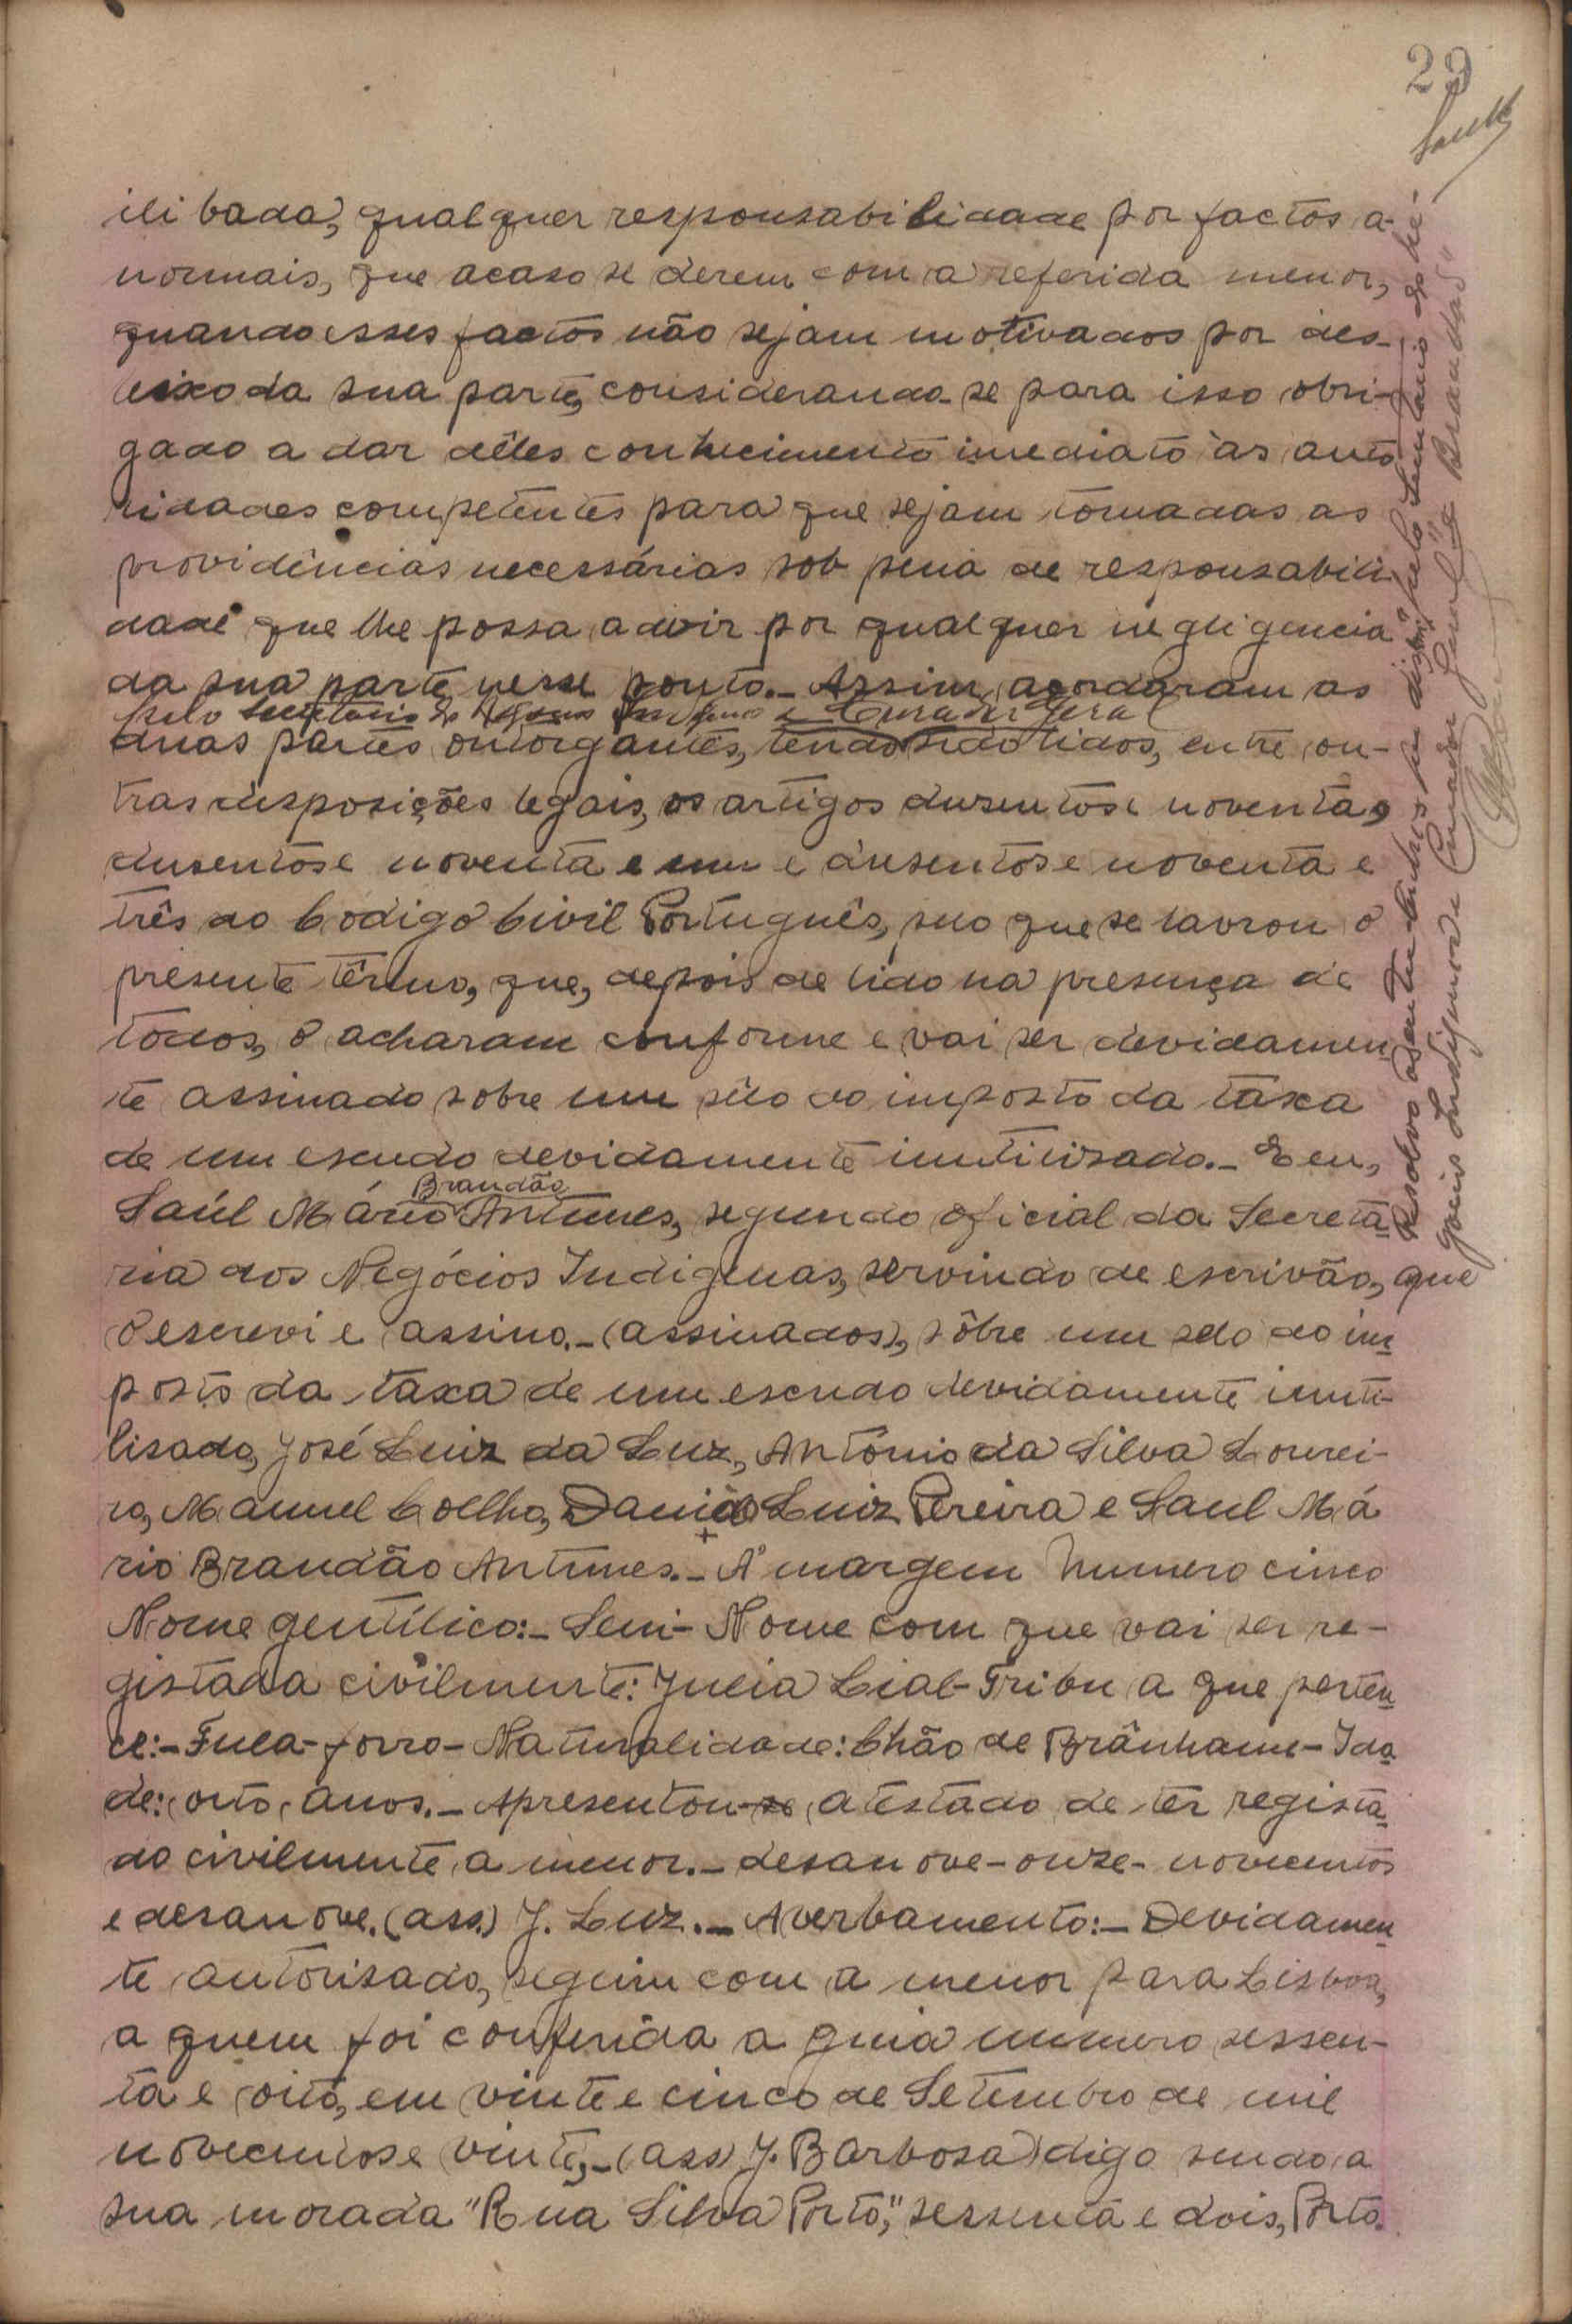 29
ilibada, qualquer responsabilidade por factos a-
normais, que acaso se derem com a referida menor,
quando esses factos não sejam motivados por des-
leixo da sua parte, considerando-se para isso obri-
gado a dar dêles conhecimento imediato ás auto
ridades competentes para que sejam tomadas as
providências necessárias sob pena de responsabili
dade que lhe possa advir por qualquer negligencia
da sua parte nesse ponto.- Assim acordaram as
pelo Secretario de Negocios Indigenas e Curador Geral
duas partes outorgantes, tendo sido lidos, entre ou-
tras disposições legais, os artigos dusentos e noventa,
dusentos e noventa e um e dusentos e noventa e
três do Codigo Civil Português, pelo que se lavrou o
presente têrmo, que, depois de lido na presença de
todos, o acharam conforme e vai ser devidamen
te assinado sobre um sêlo do imposto da taxa
de um escudo devidamente inutilisado.- E eu,
Brandão
Saúl Mário Antunes, segundo oficial da Secretá
ria dos Negócios Indigenas, servindo de escrivão, que
o escrevi e assino.- (assinados), sôbre um selo do im
posto da taxa de um escudo devidamente inuti-
lisado, José Luiz da Luz, António da Silva Lourei-
ro, Manuel Coelho, Luiz Pereira e Saul Má
rio Brandão Antunes.- A' margem Numero cinco
Nome gentílico:- Seni- Nome com que vai ser re-
gistada civilmente: Julia Lial- Tribu a que perten
ce:- Fula-forro- Naturalidade: Chão de Brânhame- Ida
de: oito anos.- Apresentou-se atestado de ter regista
do civilmente a menor.- desanove-onze-novecentos
e desanove. (ass.) J. Luz.- Averbamento:- Devidamen
te autorisado, seguiu com a menor para Lisboa,
a quem foi conferida a guia numero sessen-
ta e oito, em vinte e cinco de Setembro de mil
novecentos e vinte,- (ass) J. Barbosa) digo sendo a
sua morada "Rua Silva Porto," sessenta e dois, Porto.
Resalvo as entrelinhas que dizem "pelo Secretario de Ne-
gocios Indigenas e Curador Geral" e "Brandão"